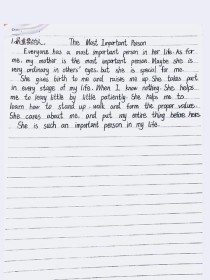 1.最重要的人 The Most Important Person
Everyone has a most important person in her life. As for
me, my mother is the most important person. Maybe she is
very ordinary in others' eyes, but she is special for me.
She gives birth to me and raises me up. She takes part
in every stage of my life. When I know nothing. She helps
me to learn little by little patiently. She helps me to
learn how to stand up, walk and form the proper value.
She cares about me and put my entire thing before hers.
She is such an important person in my life.